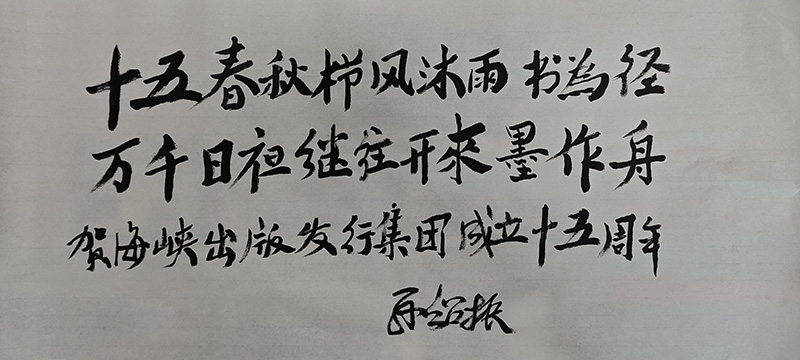 十五春秋栉风沐雨书為径
万千日继往开來墨作舟
贺海峡出版发行集团成立十五周年
孙绍振